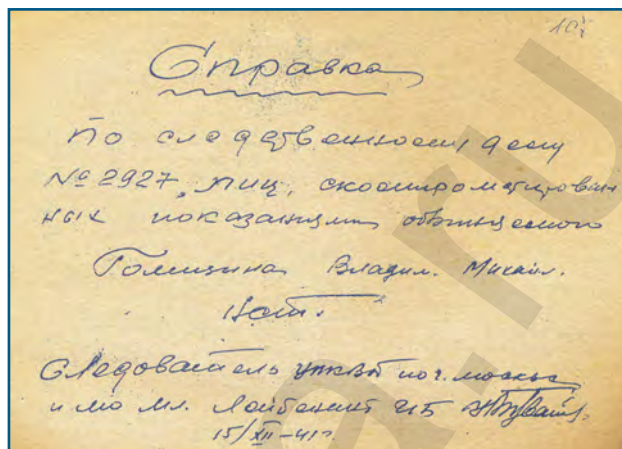 Справка
По следственному делу
№ 2927, лиц, скомпрометирован
ных показаниями обвиняемого
Голицина Владим. Михаил.
нет.
Следователь УНКВД по г. Москве
и МО мл. лейтенант ГБ
15/XII-41г.